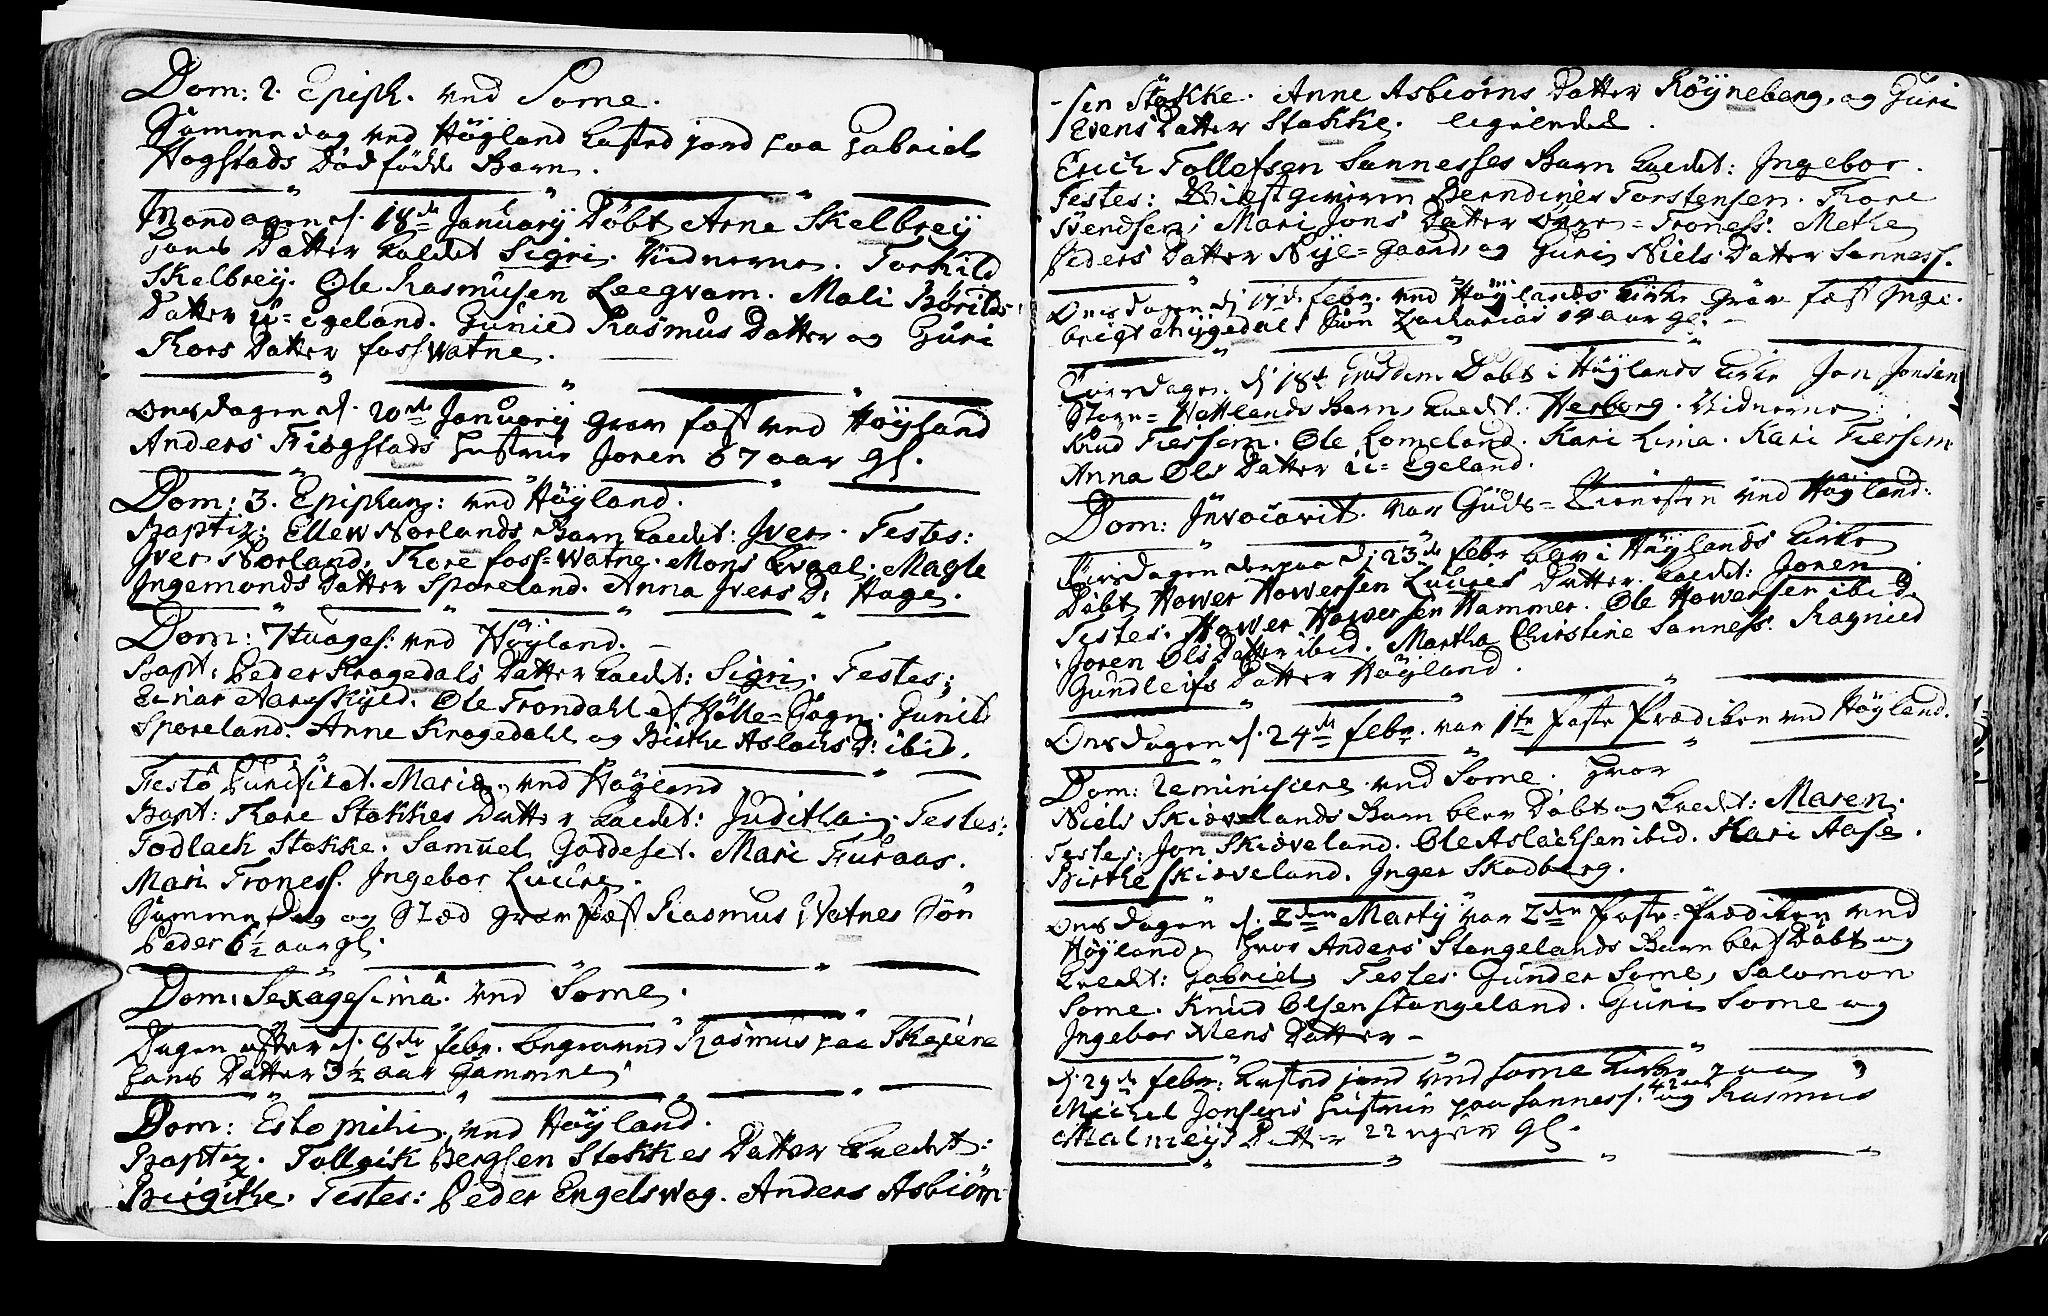 Dom: 2. Epiph. ved Some.
Samme dag ved Höyland kasted jord paa Gabriel
Hogstads Dödfödde Barn.
Mondagen d. 18de Januarij Döbt Arne Skelbreÿ
hans Datter kaldet Sigri. Vidnerne. Torkild
Skelbreÿ. Ole Rasmusen Leegvam. Mali Börilds
Datter u=egeland. Gunild Rasmus Datter og Guri
Thors Datter foss Watne.
Onsdagen d. 20de Januarij grav fæst ved Höyland
Anders Fiogstads Hustrue Joren 67 aar gl.
Dom: 3. Epiphan: ved Höyland.
Baptiz: Ellew Norlands Barn kaldet: Iver. Testes:
Iver Norland. Thore foss=Watne. Mons Kvaal. Magle
Ingemonds Datter Sporeland. Anna Ivers D: Hage.
Dom: 7tuages: ved Höyland.
Bapt: Peder Kragedals Datter kaldet: Sigri. Testes:
Einar Aareskield. Ole Trondahl af Hölle=Sogn. Gunild
Sporeland. Anne Kragedahl og Birthe Aslachs D: ibid.
Festo Purificat. Mariæ. ved Höyland
Bapt: Thore Stokkes Datter kaldet: Juditha. Testes:
Todlach Stokke. Samuel Goddeset. Mari Furaas.
Mari Troness. Ingebor Luure.
Samme Dag og Stæd grav fæst Rasmus Watnes Sön
Peder 6½ aar gl.
Dom: Sexagesima. ved Some.
Dagen efter d. 8de febr. begravet Rasmus paa Skeiene
hans Datter 3½ aar gammel
Dom: Esto mihi ved Höyland.
Baptiz. Tolleik Bergsen Stokkes Datter kaldet:
Birgithe. Testes: Peder Engelsvog. Anders Asbiörn
-sen Stokke. Anne Asbiörns Datter Röyneberg, og Guri
Evens Datter Stokke. ligeledes.
Erich Tollefsen Sannesses Barn kaldet: Ingebor.
Testes: Giestgiveren Berndines Torstensen. Thore
Svendsen, Mari Jons Datter övre=Troness. Methe
Peders Datter Nÿe=gaard, og Guri Niels Datter Sanness.
Onsdagen d. 17de febr. ved Höylands Kirke grav fæst Inge-
brigt Sön Zacharias 14 aar gl.
Torsdagen d. 18de Döbt i Höylands Kirke Jon Jonsen
Store=Hetlands Barn kaldet: Herborg. Vidnerne
Knud Tiessem. Ole Lomeland. Kari Lima. Kari Tiessem
Anna Ols Datter u=Egeland.
Dom: Invocavit. var Guds=Tienesten ved Höyland.
Tiirsdagen derpaa d: 23de febr. blev i Höylands Kirke
Döbt Hower Howersen Luures Datter. kaldet: Joren
Testes. Hower Howersen Hammer. Ole Howersen ibid.
Joren Ols Datter ibid. Martha Christine Sanness. Ragnied
Gundleifs Datter Höyland.
Onsdagen d. 24de febr. var 1te faste Prædiken ved Höyland.
Dom: Reminiscere ved Some. hvor
Niels Skiævelands Barn blev Döbt og kaldet: Maren.
Testes: Jon Skiæveland. Ole Aslachsen ibid. Kari Aase.
Birthe Skiæveland. Inger Skadberg.
Onsdagen d. 2den Martij var 2den Faste=Prædiken ved
Höyland, hvor Anders Stangelands Barn blef Döbt og
kaldet: Gabriel, Testes: Gunder Some, Salomon
Some. Knud Olsen Stangeland. Guri Some og
Ingebor Datter
d. 29de febr: kasted jord ved Some Kirke paa
Michel Jonsens Hustrue paa Sanness. 42 aar og Rasmus
Malmeÿs Datter 22 uger gl.